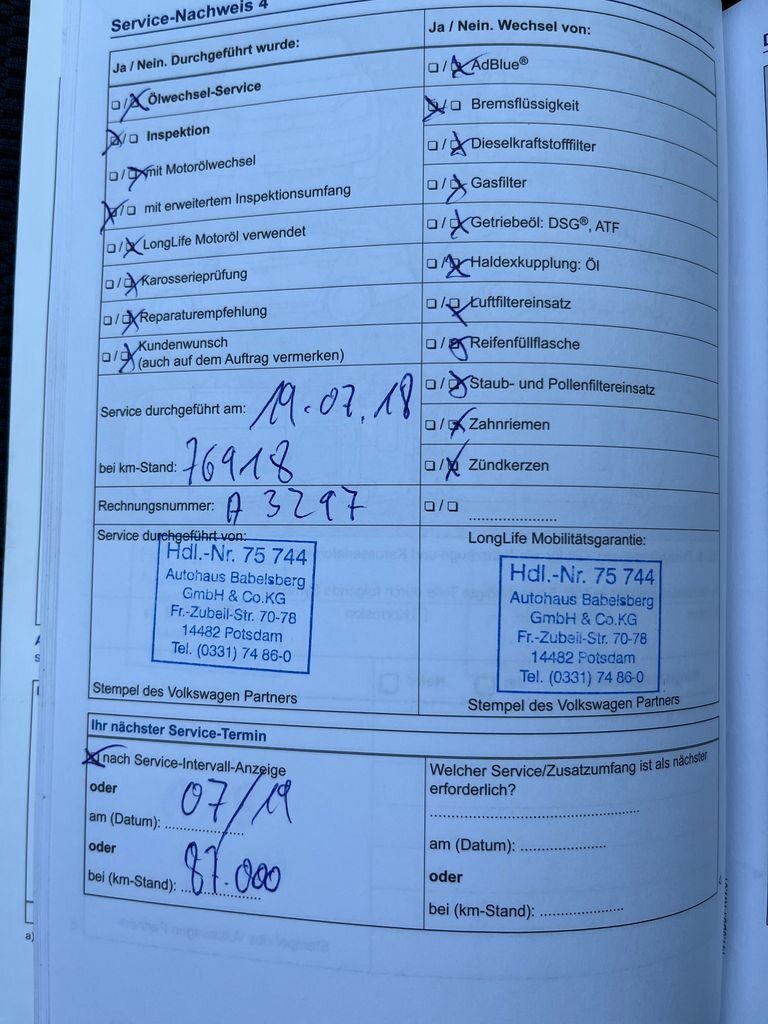 Service-Nachweis 4
Ja / Nein. Durchgeführt wurde:
❏ / ❏ Ölwechsel-Service
❏ / ❏ Inspektion
❏ / ❏ mit Motorölwechsel
❏ / ❏ mit erweitertem Inspektionsumfang
❏ / ❏ LongLife Motoröl verwendet
❏ / ❏ Karosserieprüfung
❏ / ❏ Reparaturempfehlung
❏ / ❏ Kundenwunsch
(auch auf dem Auftrag vermerken)
Service durchgeführt am: 19.07.18
bei km-Stand: 76918
Rechnungsnummer: A 3297
Service durchgeführt von:
Hdl.-Nr. 75 744
Autohaus Babelsberg
GmbH & Co.KG
Fr.-Zubeil-Str. 70-78
14482 Potsdam
Tel. (0331) 74 86-0
Stempel des Volkswagen Partners
Ja / Nein. Wechsel von:
❏ / ❏ AdBlue®
❏ / ❏ Bremsflüssigkeit
❏ / ❏ Dieselkraftstofffilter
❏ / ❏ Gasfilter
❏ / ❏ Getriebeöl: DSG®, ATF
❏ / ❏ Haldexkupplung: Öl
❏ / ❏ Luftfiltereinsatz
❏ / ❏ Reifenfüllflasche
❏ / ❏ Staub- und Pollenfiltereinsatz
❏ / ❏ Zahnriemen
❏ / ❏ Zündkerzen
❏ / ❏ ....................
LongLife Mobilitätsgarantie:
Hdl.-Nr. 75 744
Autohaus Babelsberg
GmbH & Co.KG
Fr.-Zubeil-Str. 70-78
14482 Potsdam
Tel. (0331) 74 86-0
Stempel des Volkswagen Partners
Ihr nächster Service-Termin
❏ nach Service-Intervall-Anzeige
oder
am (Datum): 07/19
oder
bei (km-Stand): 87.000
Welcher Service/Zusatzumfang ist als nächster
erforderlich?
am (Datum): ....................
oder
bei (km-Stand): ....................